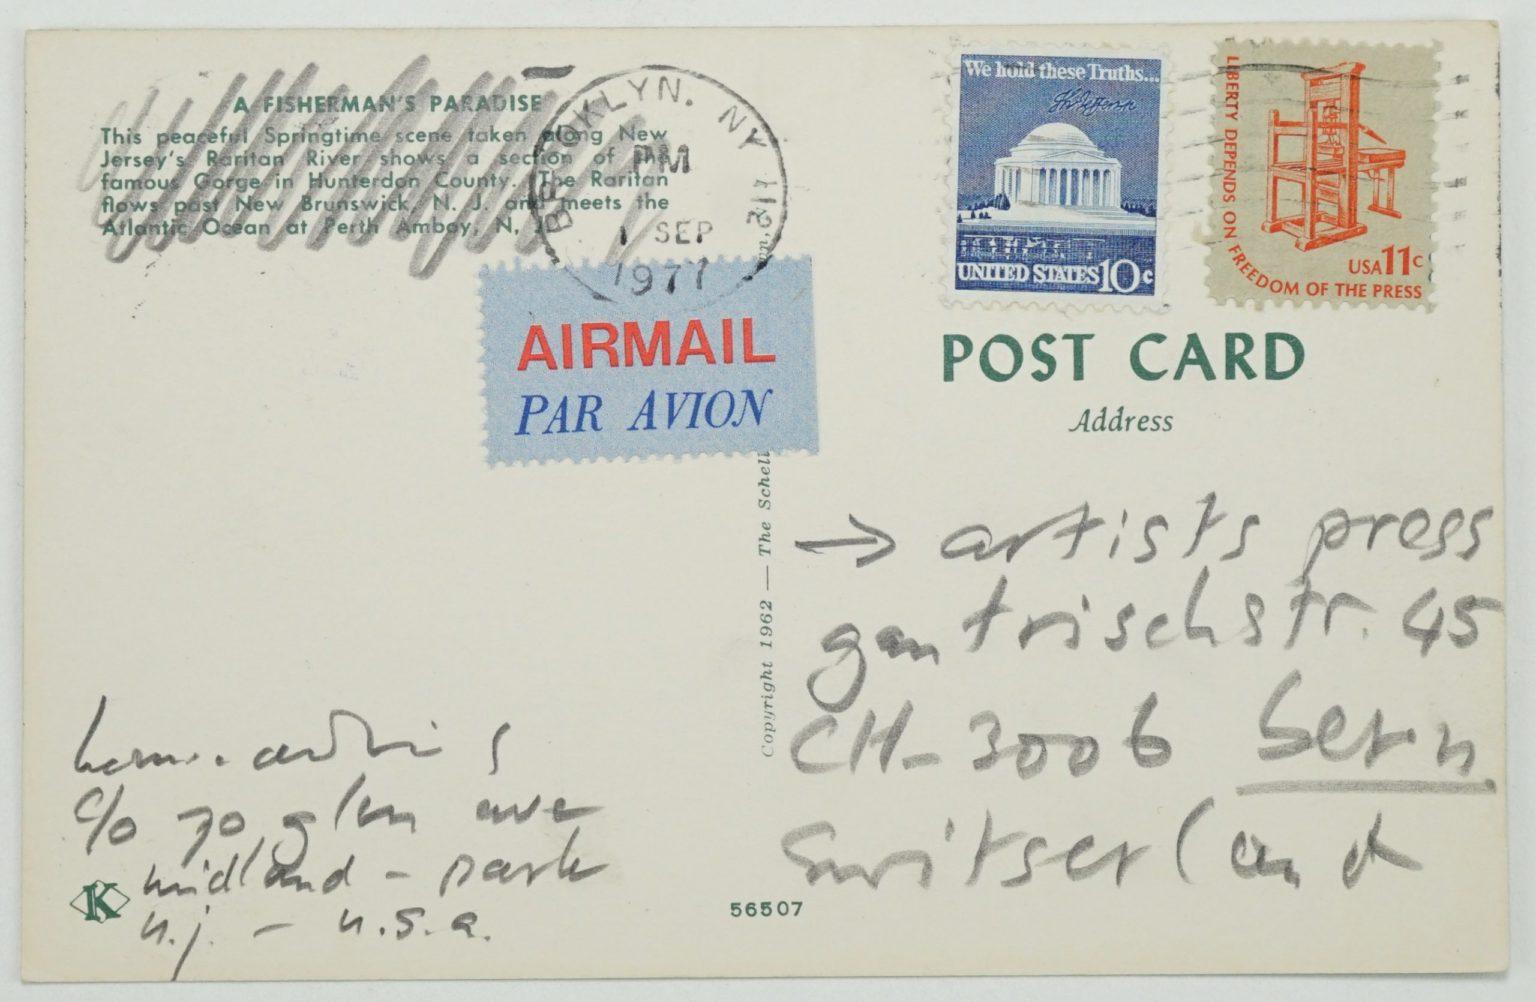 A FISHERMAN'S PARADISE
This peaceful Springtime scene taken along New
Jersey's Raritan River shows a section of the
famous Gorge in Hunterdon County. The Raritan
flows past New Brunswick, N. J. and meets the
Atlantic Ocean at Perth Amboy, N. J.
BROOKLYN, NY 112
PM
1 SEP
1977
AIRMAIL
PAR AVION
We hold these Truths...
UNITED STATES 10c
LIBERTY DEPENDS ON FREEDOM OF THE PRESS
USA 11c
POST CARD
Address
→ artists press
gantrischstr. 45
CH-3006 bern
switserland
Copyright 1962 — The Schell
c/o 70 glen ave
midland - park
n.j. - u.s.a.
K
56507